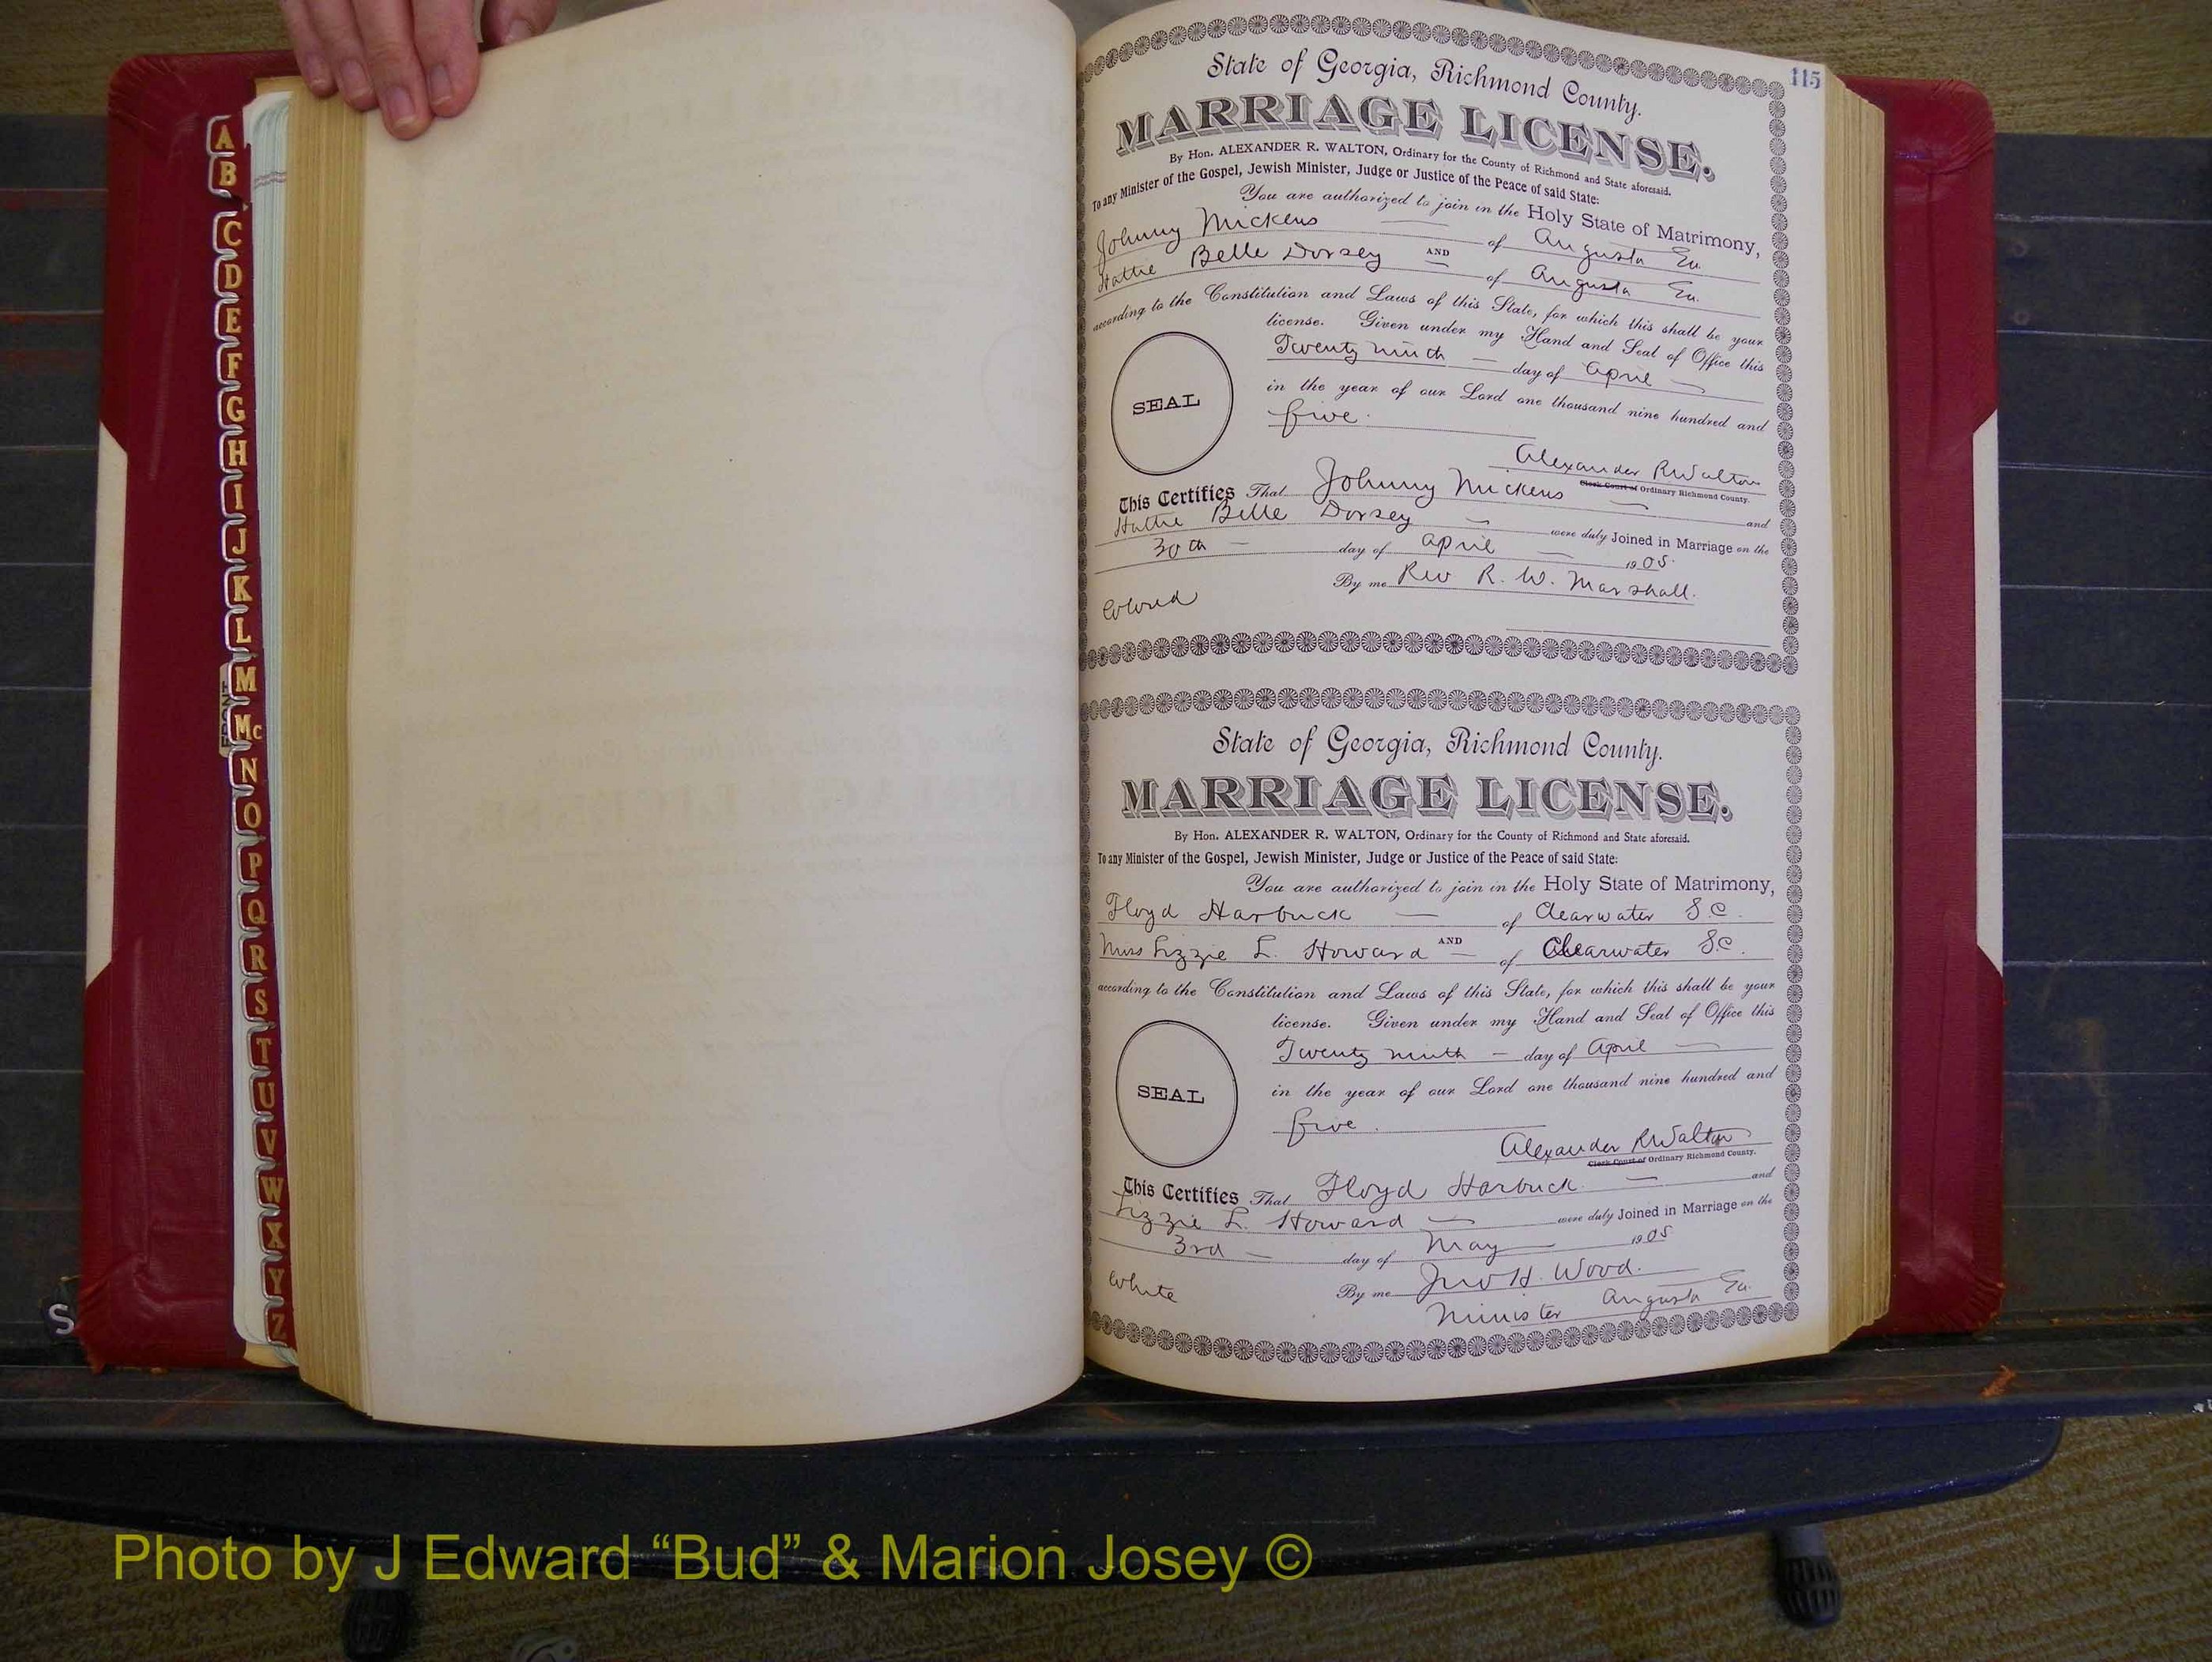 A
B
C
D
E
F
G
H
I
J
K
L
M
Mc
N
O
P
Q
R
S
T
U
V
W
X
Y
Z
S
115
State of Georgia, Richmond County.
MARRIAGE LICENSE.
By Hon. ALEXANDER R. WALTON, Ordinary for the County of Richmond and State aforesaid.
To any Minister of the Gospel, Jewish Minister, Judge or Justice of the Peace of said State:
You are authorized to join in the Holy State of Matrimony,
Johnny Mickens of Augusta Ga.
AND
Hattie Belle Dorsey of Augusta Ga.
according to the Constitution and Laws of this State, for which this shall be your
license. Given under my Hand and Seal of Office this
Twenty ninth day of April
in the year of our Lord one thousand nine hundred and
five.
SEAL
Alexander R Walton
Clerk Court of Ordinary Richmond County.
This Certifies That Johnny Mickens and
Hattie Belle Dorsey were duly Joined in Marriage on the
30th day of April 1905.
By me Rev R. W. Marshall.
Colored
State of Georgia, Richmond County.
MARRIAGE LICENSE.
By Hon. ALEXANDER R. WALTON, Ordinary for the County of Richmond and State aforesaid.
To any Minister of the Gospel, Jewish Minister, Judge or Justice of the Peace of said State:
You are authorized to join in the Holy State of Matrimony,
Floyd Harbuck of Clearwater S.C.
AND
Miss Lizzie L. Howard of Clearwater S.C.
according to the Constitution and Laws of this State, for which this shall be your
license. Given under my Hand and Seal of Office this
Twenty ninth day of April
in the year of our Lord one thousand nine hundred and
five.
SEAL
Alexander R Walton
Clerk Court of Ordinary Richmond County.
This Certifies That Floyd Harbuck and
Lizzie L. Howard were duly Joined in Marriage on the
3rd day of May 1905
By me Jno H. Wood.
White
Minister Augusta Ga.
Photo by J Edward “Bud” & Marion Josey ©